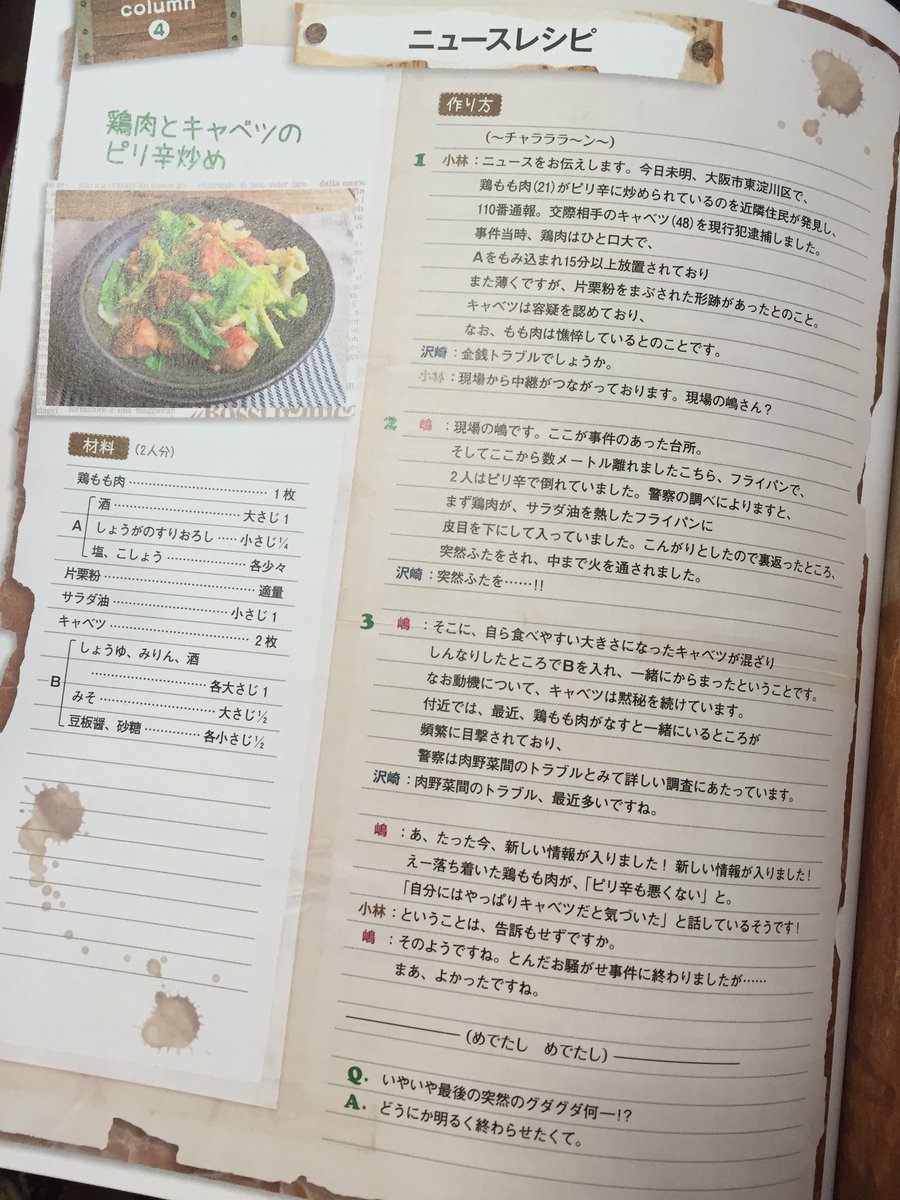 column
4
ニュースレシピ
鶏肉とキャベツの
ピリ辛炒め
材料 (2人分)
鶏もも肉……………………………1枚
A
酒……………………大さじ1
しょうがのすりおろし……小さじ1/4
塩、こしょう……………各少々
片栗粉……………………………適量
サラダ油……………………小さじ1
キャベツ……………………………2枚
B
しょうゆ、みりん、酒
……………………各大さじ1
みそ……………………大さじ1/2
豆板醤、砂糖……………各小さじ1/2
作り方
(〜チャラララ〜ン〜)
1 小林:ニュースをお伝えします。今日未明、大阪市東淀川区で、
鶏もも肉(21)がピリ辛に炒められているのを近隣住民が発見し、
110番通報。交際相手のキャベツ(48)を現行犯逮捕しました。
事件当時、鶏肉はひと口大で、
Aをもみ込まれ15分以上放置されており
また薄くですが、片栗粉をまぶされた形跡があったとのこと。
キャベツは容疑を認めており、
なお、もも肉は憔悴しているとのことです。
沢崎:金銭トラブルでしょうか。
小林:現場から中継がつながっております。現場の嶋さん?
2 嶋:現場の嶋です。ここが事件のあった台所。
そしてここから数メートル離れましたこちら、フライパンで、
2人はピリ辛で倒れていました。警察の調べによりますと、
まず鶏肉が、サラダ油を熱したフライパンに
皮目を下にして入っていました。こんがりとしたので裏返ったところ、
突然ふたをされ、中まで火を通されました。
沢崎:突然ふたを……!!
3 嶋:そこに、自ら食べやすい大きさになったキャベツが混ざり
しんなりしたところでBを入れ、一緒にからまったということです。
なお動機について、キャベツは黙秘を続けています。
付近では、最近、鶏もも肉がなすと一緒にいるところが
頻繁に目撃されており、
警察は肉野菜間のトラブルとみて詳しい調査にあたっています。
沢崎:肉野菜間のトラブル、最近多いですね。
嶋:あ、たった今、新しい情報が入りました! 新しい情報が入りました!
えー落ち着いた鶏もも肉が、「ピリ辛も悪くない」と。
「自分にはやっぱりキャベツだと気づいた」と話しているそうです!
小林:ということは、告訴もせずですか。
嶋:そのようですね。とんだお騒がせ事件に終わりましたが……
まあ、よかったですね。
(めでたし めでたし)
Q. いやいや最後の突然のグダグダ何ー!?
A. どうにか明るく終わらせたくて。